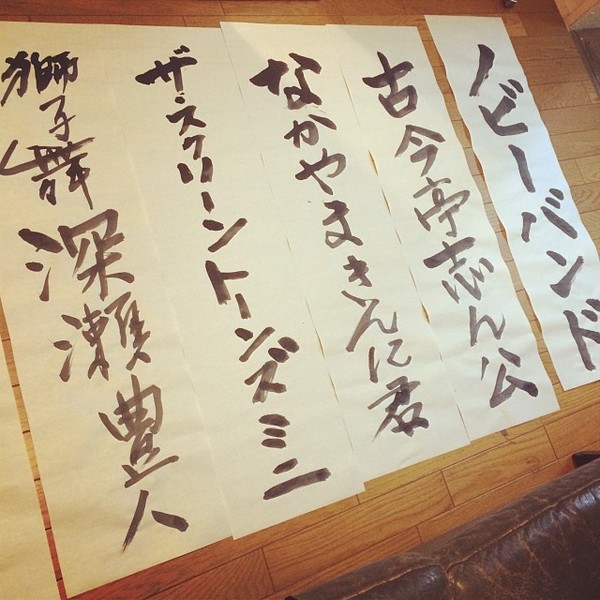 ノビーバンド
古今亭志ん公
なかやまきんに君
ザ・スクリーントーンズミニ
獅子舞 深瀬豊人